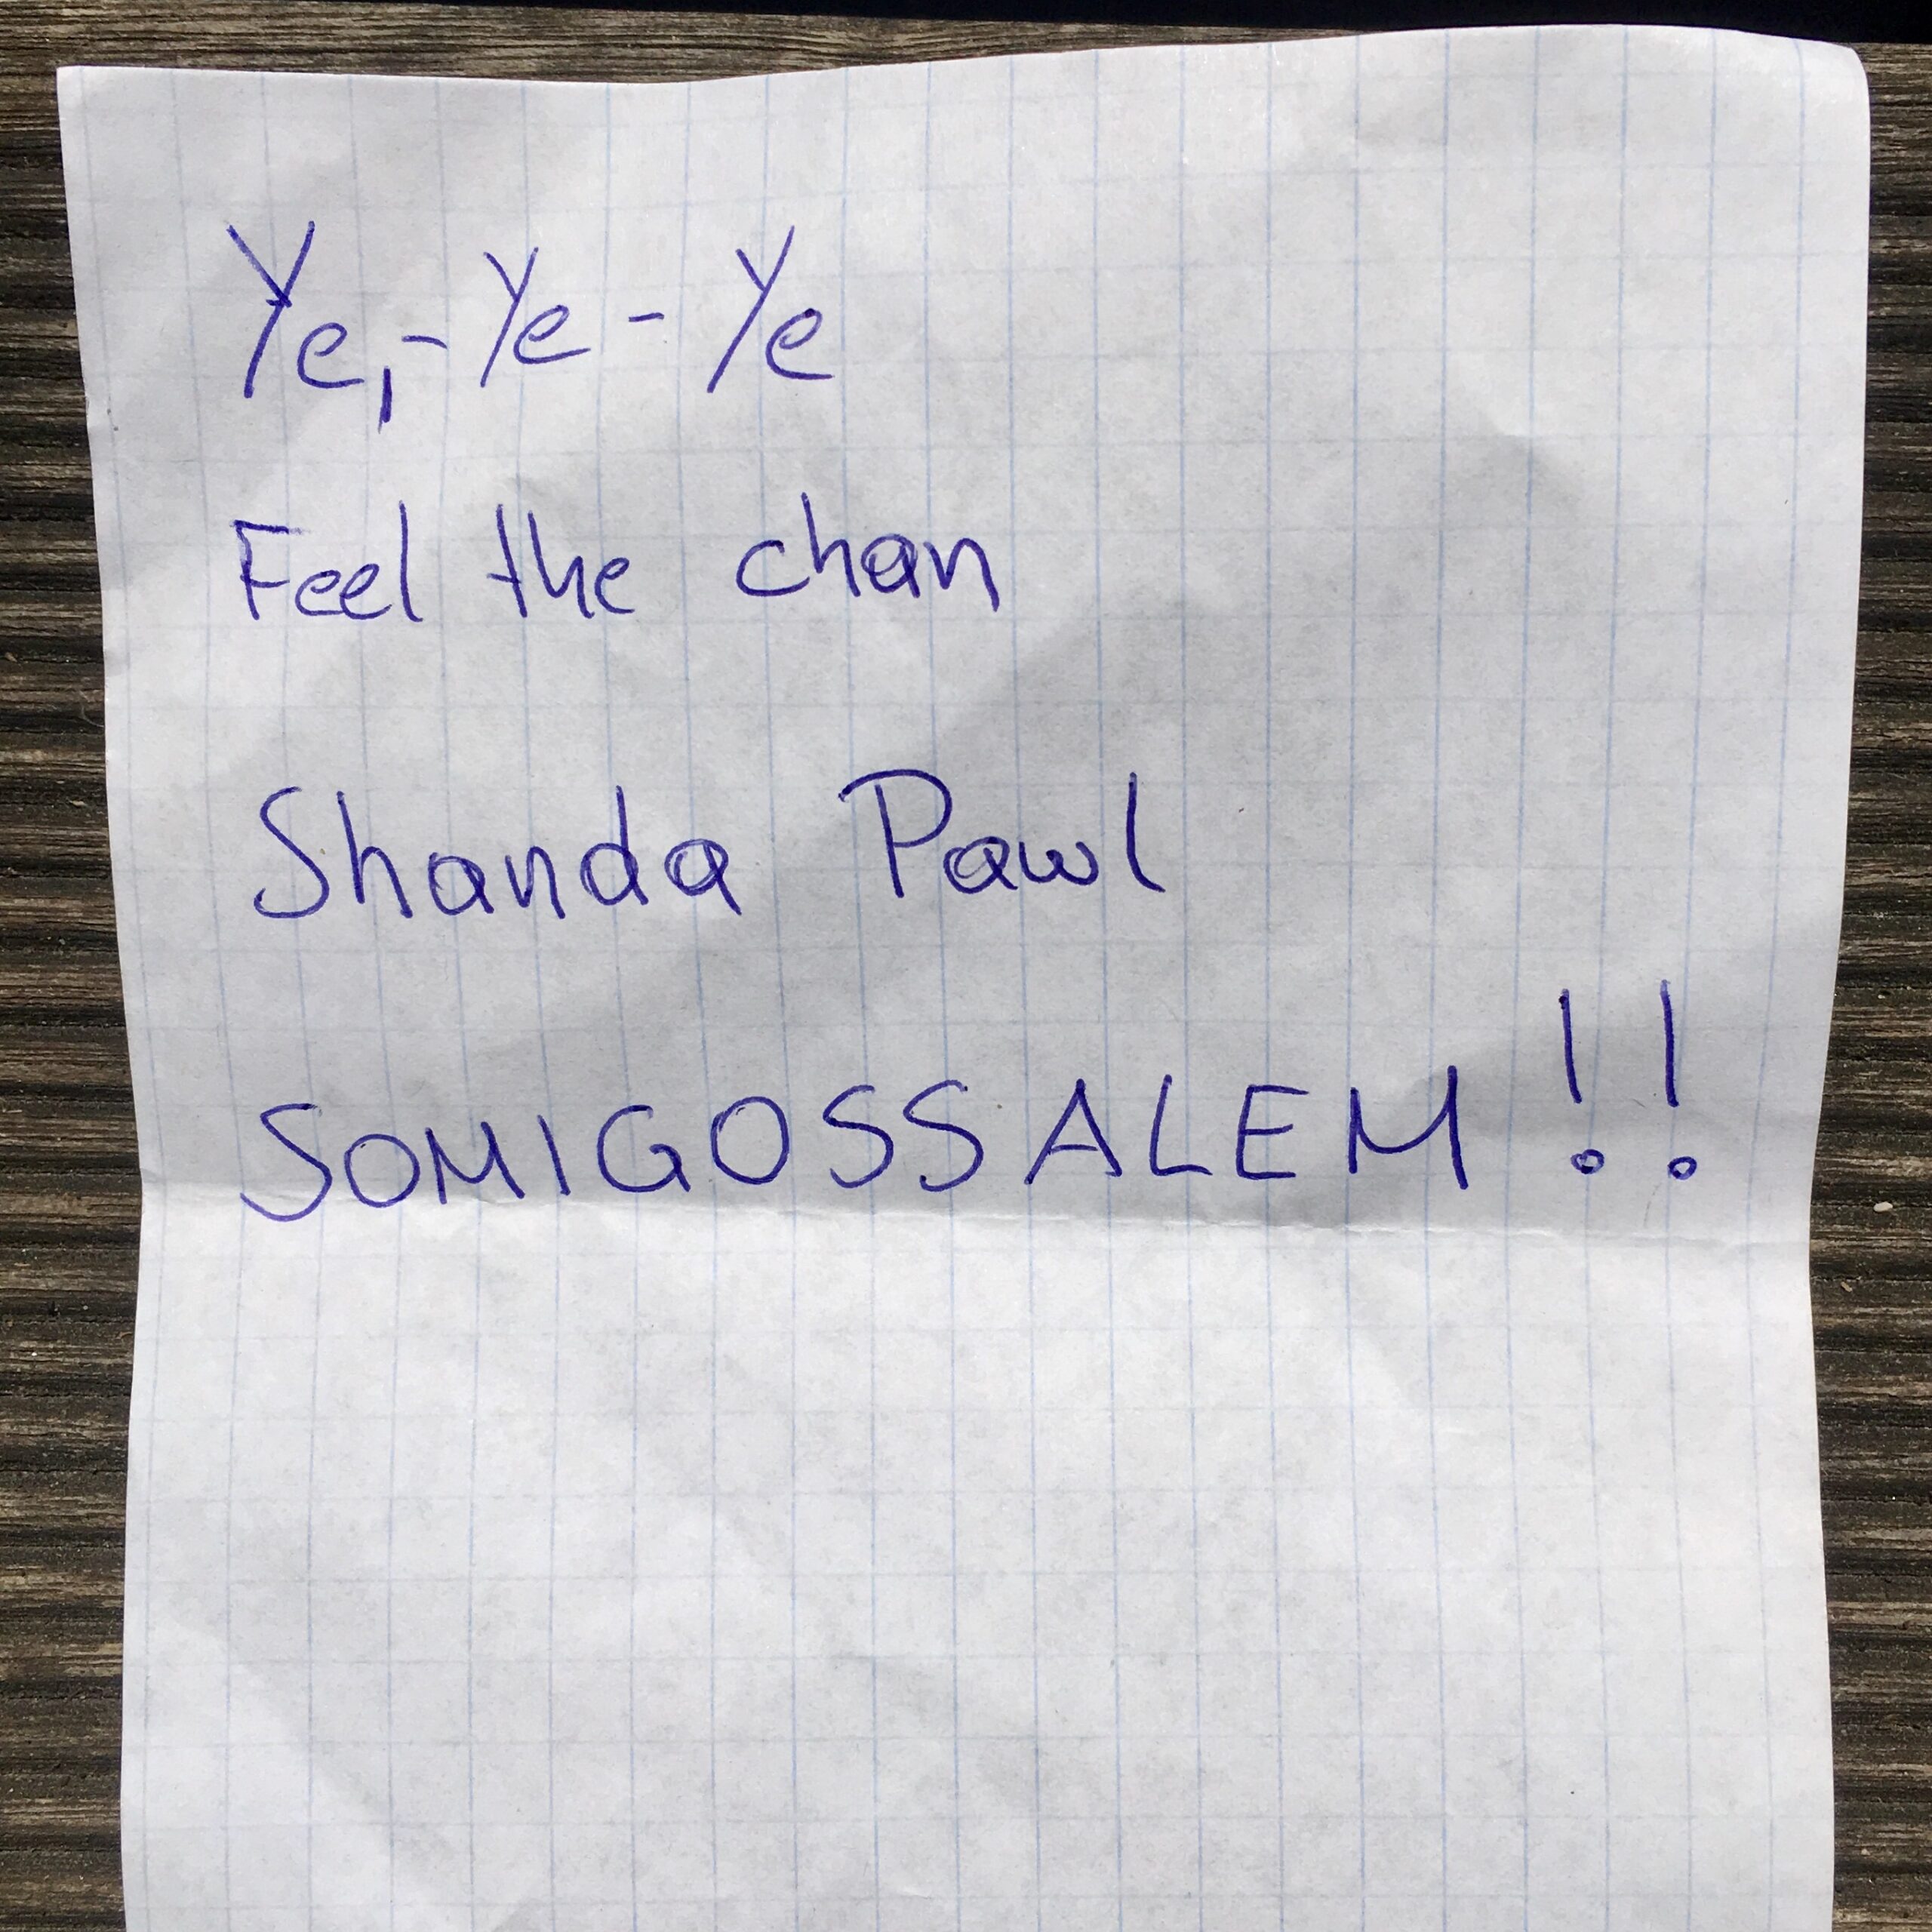 Ye,-Ye-Ye
Feel the chan
Shanda Pawl
SOMIGOSSALEM!!